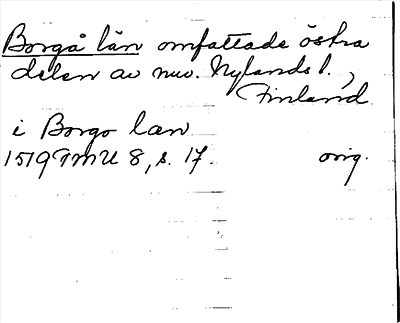 Borgå län omfattade östra
delen av nuv. Nylands l.,
Finland
i Borgo lan
1519 FMU 8, s. 17. orig.